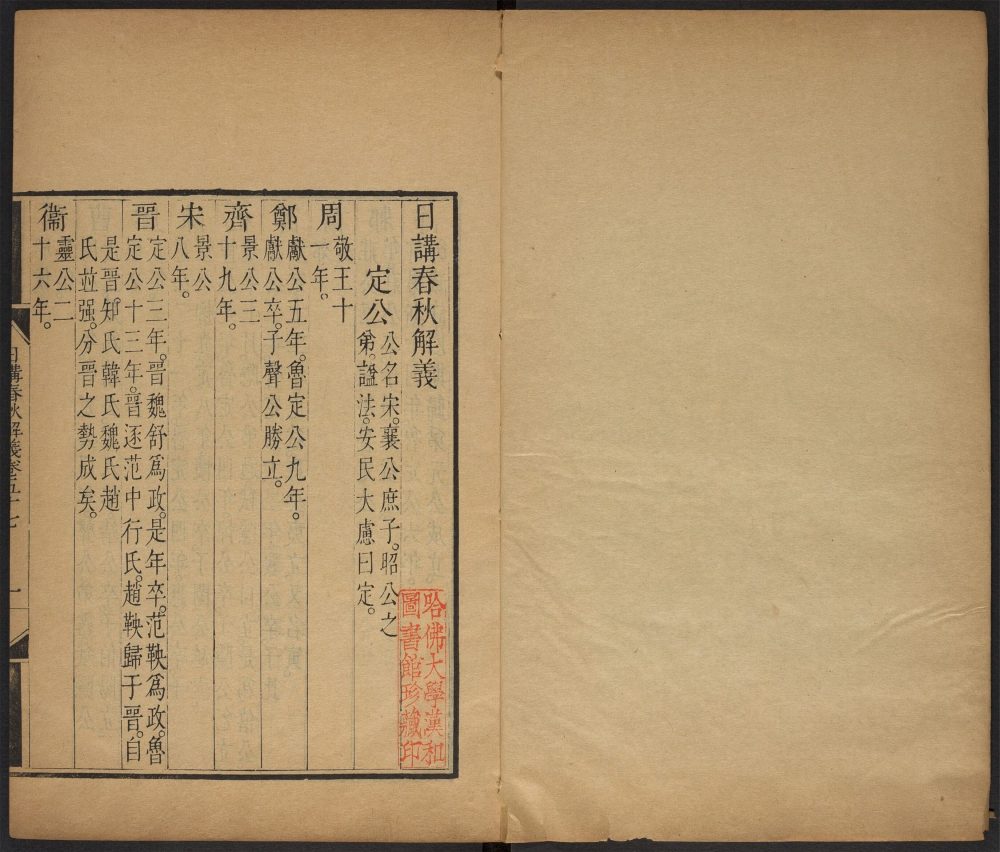 日講春秋解義
定公
公名宋。襄公庶子。昭公之
弟。諡法。安民大慮曰定。
周
敬王十
一年。
鄭
獻公五年。魯定公九年。
獻公卒。子聲公勝立。
齊
景公三
十九年。
宋
景公
八年。
晉
定公三年。晉魏舒爲政。是年卒。范鞅爲政。魯
定公十三年。晉逐范中行氏。趙鞅歸于晉。自
是晉知氏韓氏魏氏趙
氏並强。分晉之勢成矣。
衞
靈公二
十六年。
日講春秋解義卷五十七
一
哈佛大學漢和
圖書館珍藏印